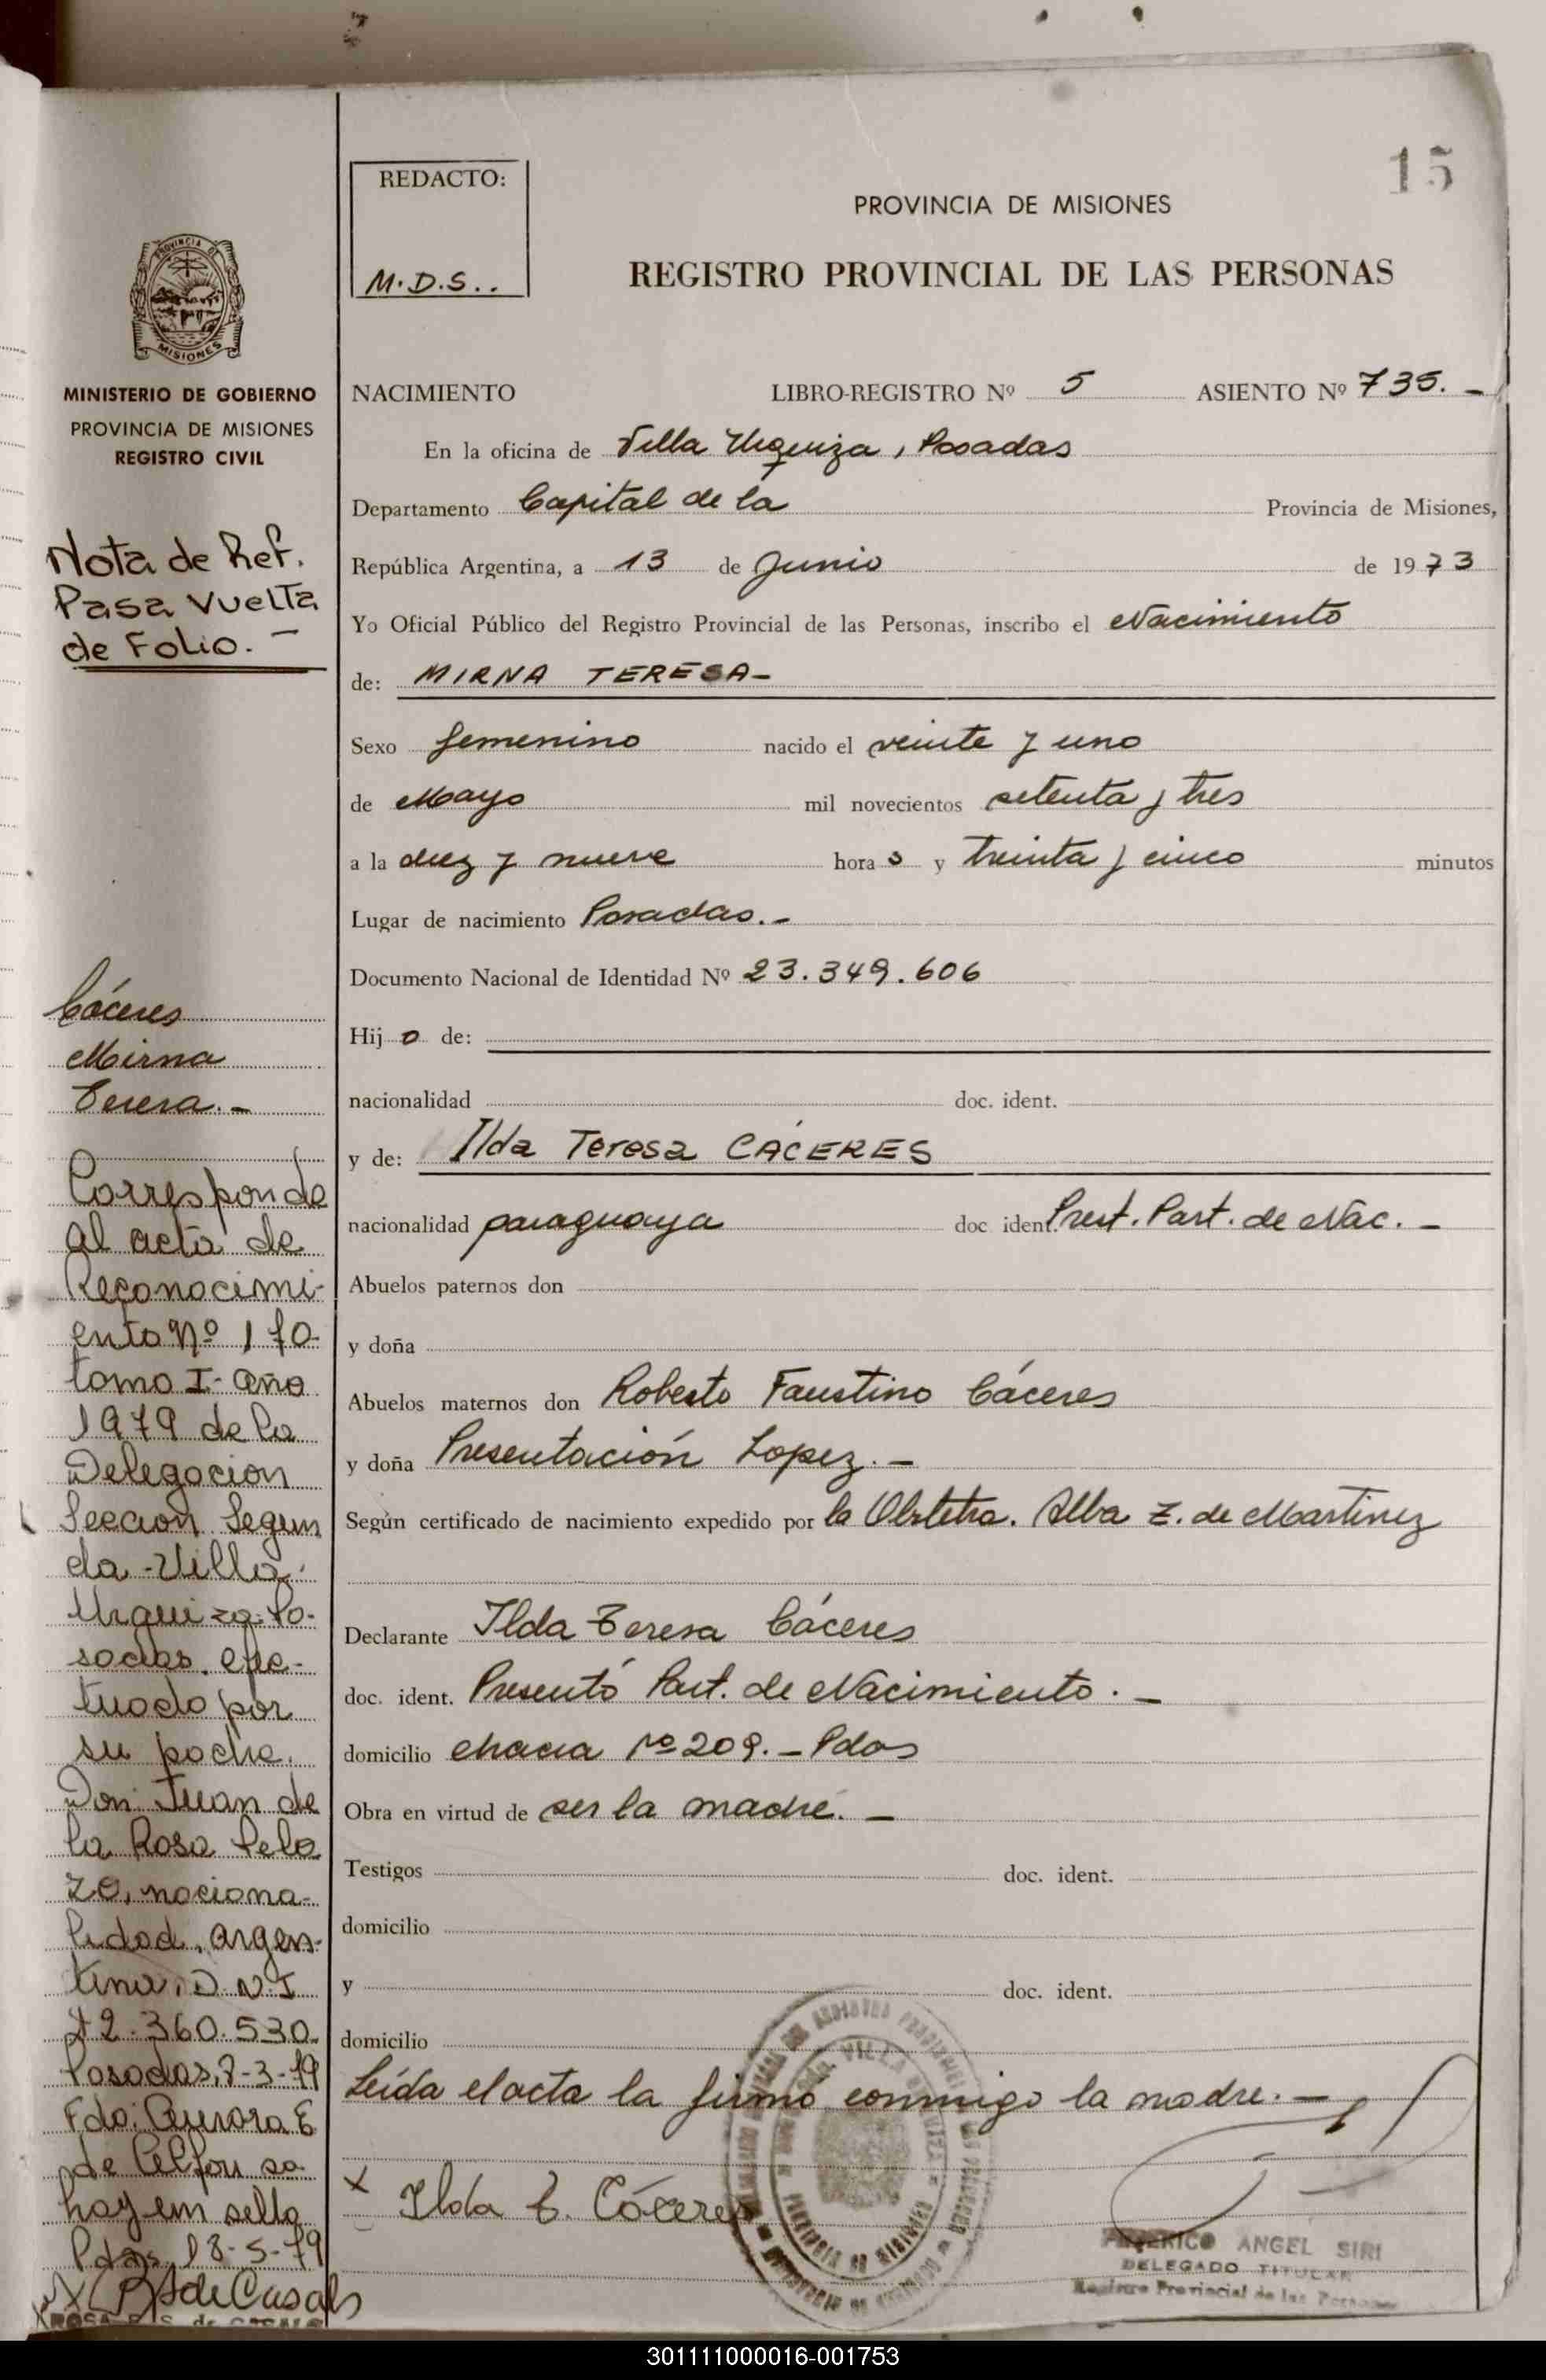 15
REDACTO:
M.D.S..
PROVINCIA DE MISIONES
REGISTRO PROVINCIAL DE LAS PERSONAS
PROVINCIA DE
MISIONES
MINISTERIO DE GOBIERNO
PROVINCIA DE MISIONES
REGISTRO CIVIL
Nota de Ref.
Pasa Vuelta
de Folio. —
Cáceres
Mirna
Teresa. -
Corresponde
al acta de
Reconocimi-
ento Nº 170-
tomo I- año
1979 de la
Delegacion
Seccion Segun
da - Villa
Urquiza- Po-
sadas, efec-
tuado por
su padre,
Don Juan de
la Rosa Pelo
zo, naciona-
lidad, argen-
tina, D.N.I
12.360.530
Posadas, 7-3-79
Fdo: Aurora E
de
hay un sello
Pdas, 18-5-79
de Casals
NACIMIENTO LIBRO-REGISTRO Nº 5 ASIENTO Nº 735. -
En la oficina de Villa Urquiza, Posadas
Departamento Capital de la Provincia de Misiones,
República Argentina, a 13 de Junio de 1973
Yo Oficial Público del Registro Provincial de las Personas, inscribo el Nacimiento
de: MIRNA TERESA-
Sexo femenino nacido el veinte y uno
de Mayo mil novecientos setenta y tres
a la diez y nueve hora s y treinta y cinco minutos
Lugar de nacimiento Posadas. -
Documento Nacional de Identidad Nº 23.349.606
Hij a de:
nacionalidad doc. ident.
y de: Ilda Teresa CÁCERES
nacionalidad paraguaya doc ident. Prest. Part. de Nac. -
Abuelos paternos don
y doña
Abuelos maternos don Roberto Faustino Cáceres
y doña Presentación Lopez. -
Según certificado de nacimiento expedido por la Obstetra. Alba Z. de Martinez
Declarante Ilda Teresa Cáceres
doc. ident. Presentó Part. de Nacimiento. -
domicilio chacra Nº 209. - Pdas
Obra en virtud de ser la madre. -
Testigos doc. ident.
domicilio
y doc. ident.
domicilio
Leída el acta la firma conmigo la madre. -
x Ilda T. Cáceres
ANGEL SIRI
DELEGADO TITULAR
Registro Provincial de las Personas
301111000016-001753